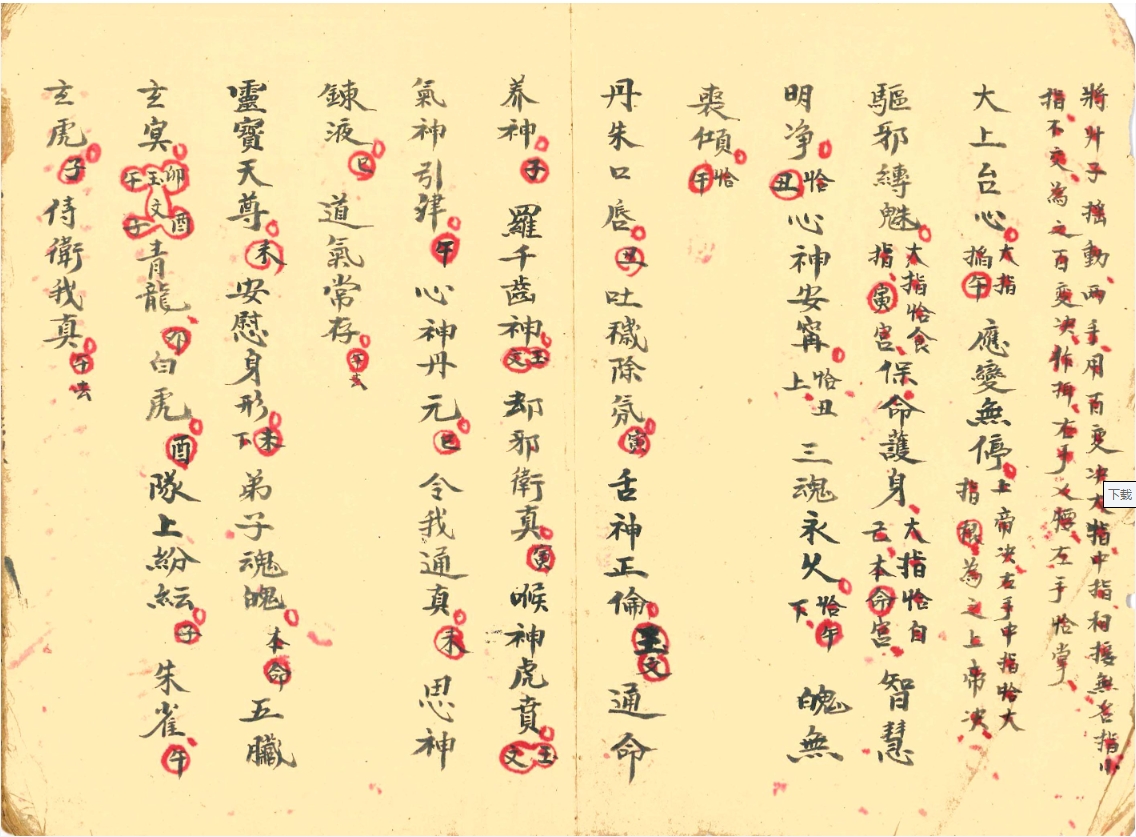 將卄子搖動兩手用百変决大指中指相接無名指小
指不交為之百变决作揖右手乂腰左手恰掌
大上台心大指掐午應變無停上帝决右手中指恰大指根為之上帝决
驅邪縛魅大指恰食指寅宮保命護身大指恰自己本命宮智慧
明净恰丑心神安寗恰丑上三魂永久恰午下魄無
喪傾恰午
丹朱口唇丑吐穢除氛寅舌神正倫玉文通命
养神子羅千齒神玉文却邪衛真寅喉神虎賁玉文
氣神引肂午心神丹元巳令我通真未思神
鍊液巳道氣常存午去
靈寶天尊未安慰身形未下弟子魂魄本命五臟
玄冥卯酉玉文午子青龍卯白虎酉隊上紛紜子朱雀午
玄虎子侍衛我真午去
下载